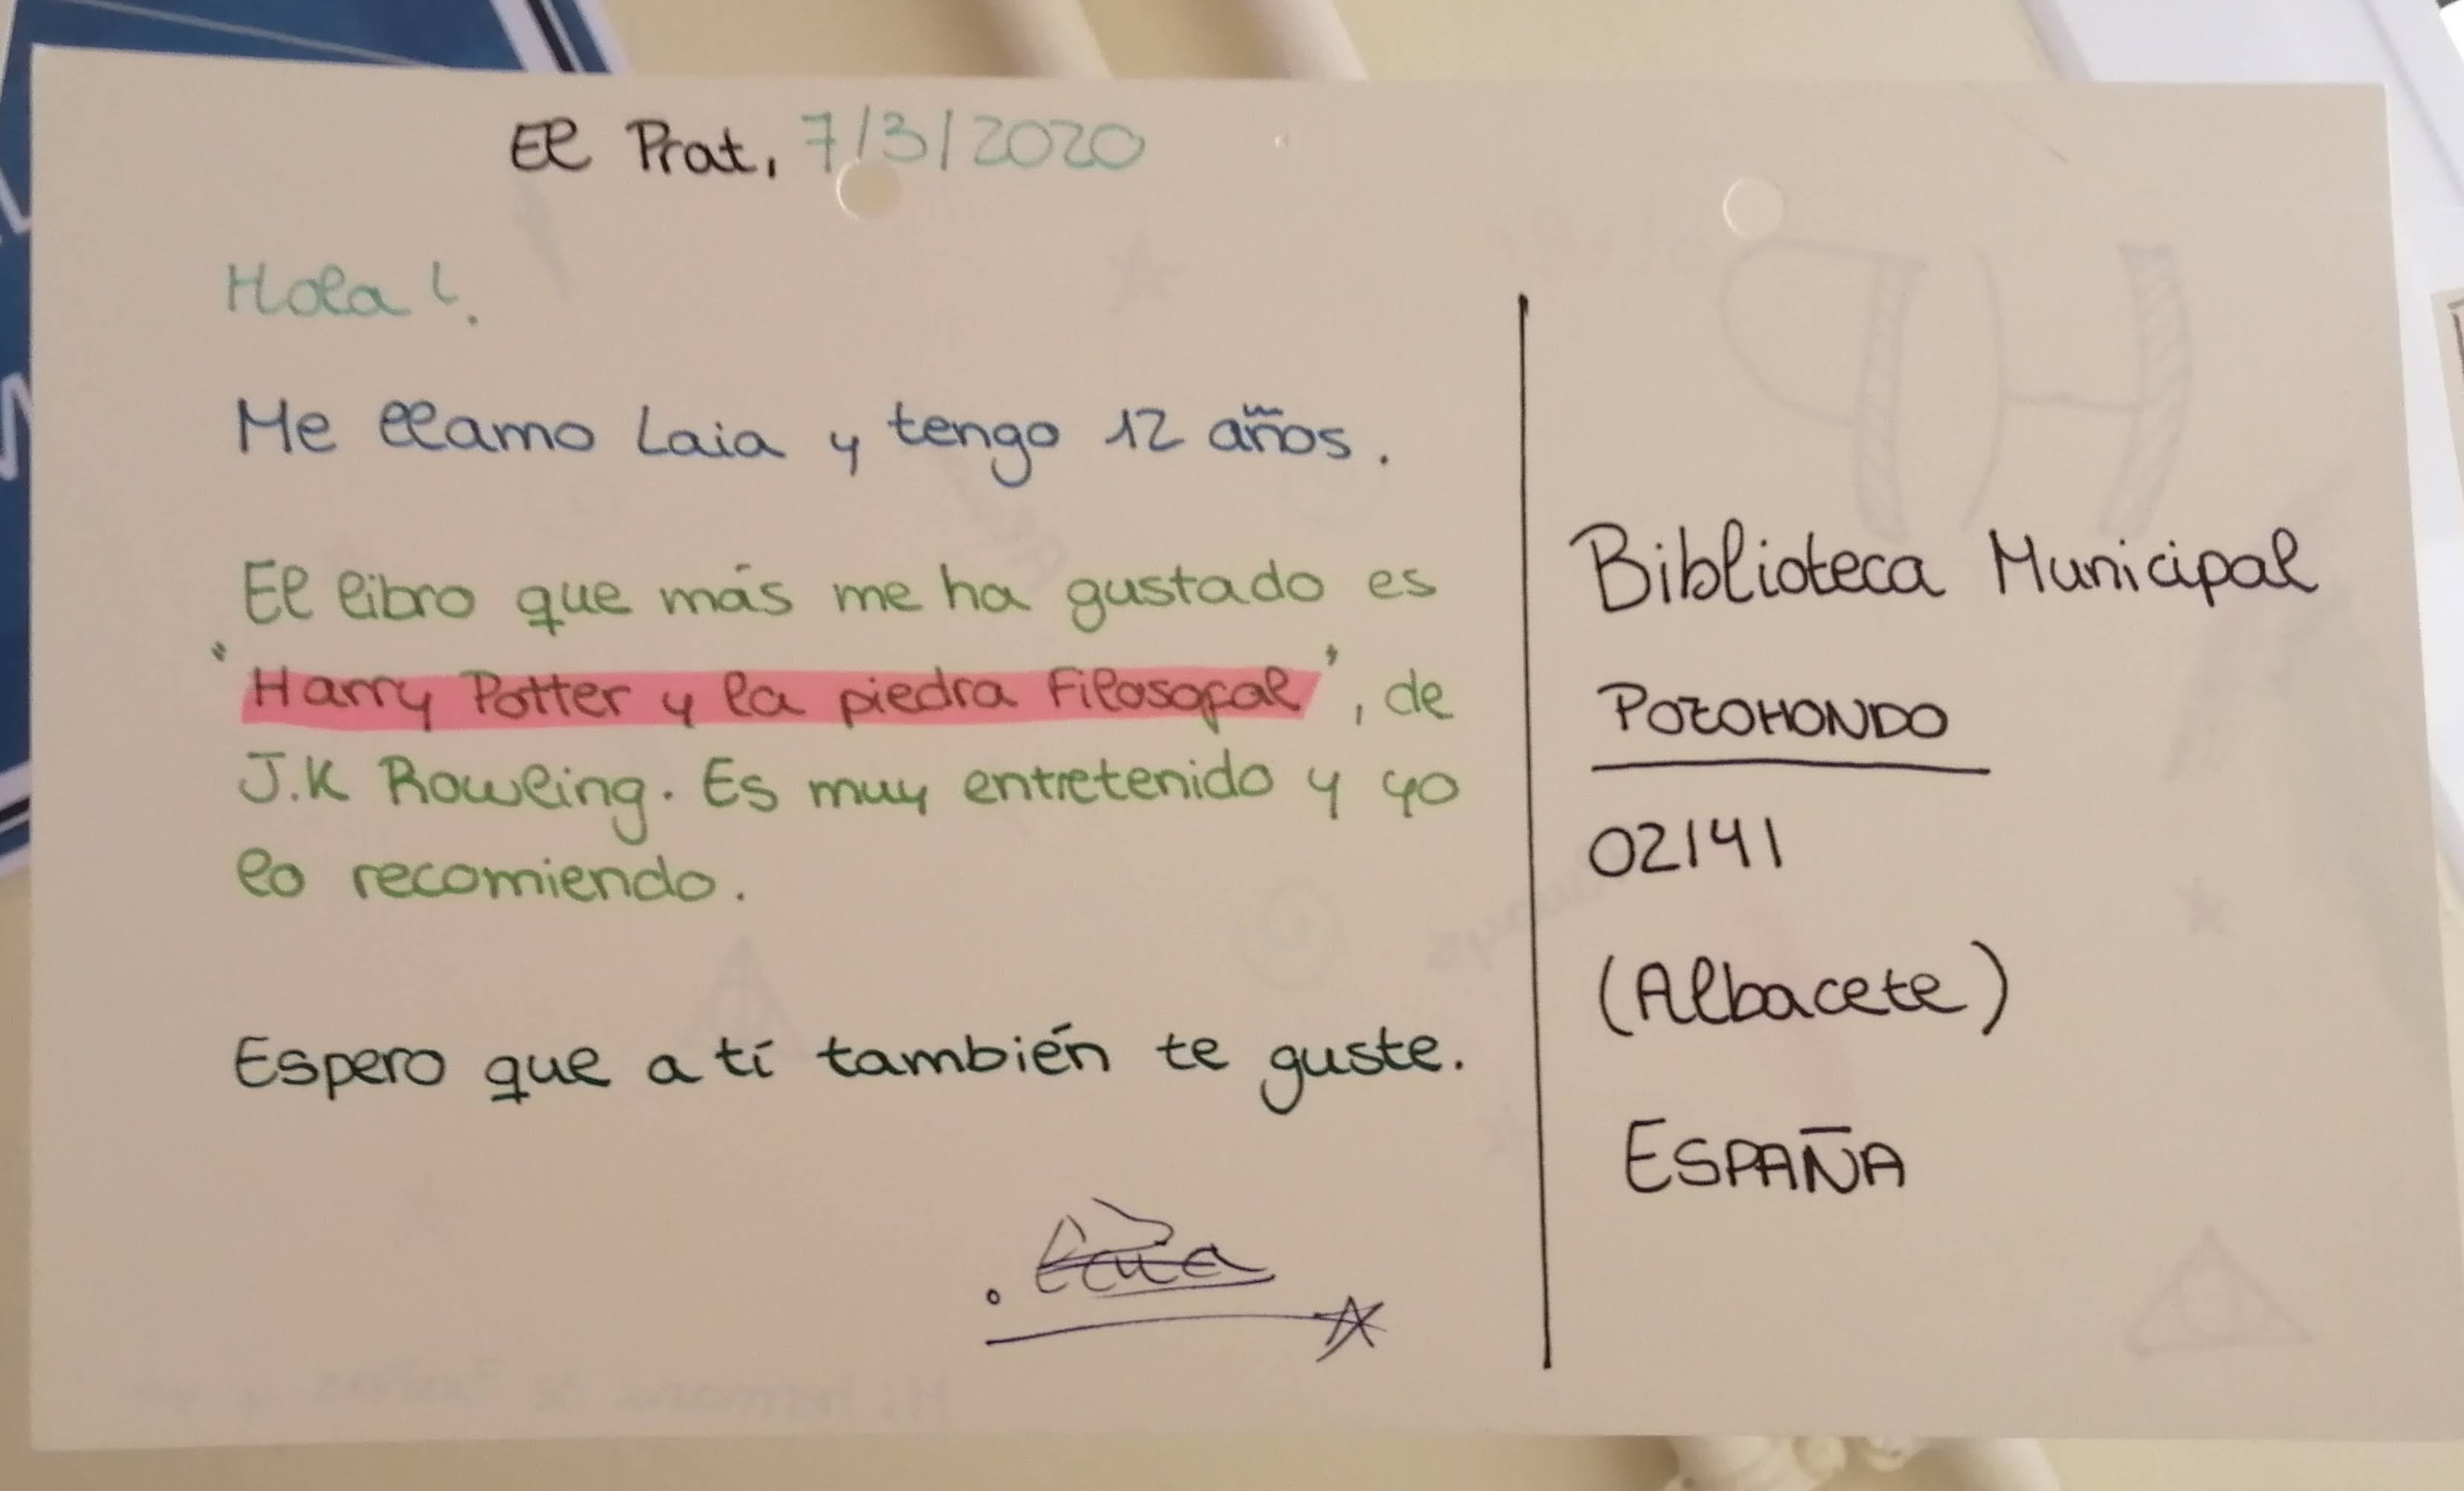 El Prat, 7/3/2020
Hola!.
Me llamo Laia y tengo 12 años.
El libro que más me ha gustado es
"Harry Potter y la piedra Filosofal", de
J.K Rowling. Es muy entretenido y yo
lo recomiendo.
Espero que a tí también te guste.
Laia
Biblioteca Municipal
POZOHONDO
02141
(Albacete)
ESPAÑA